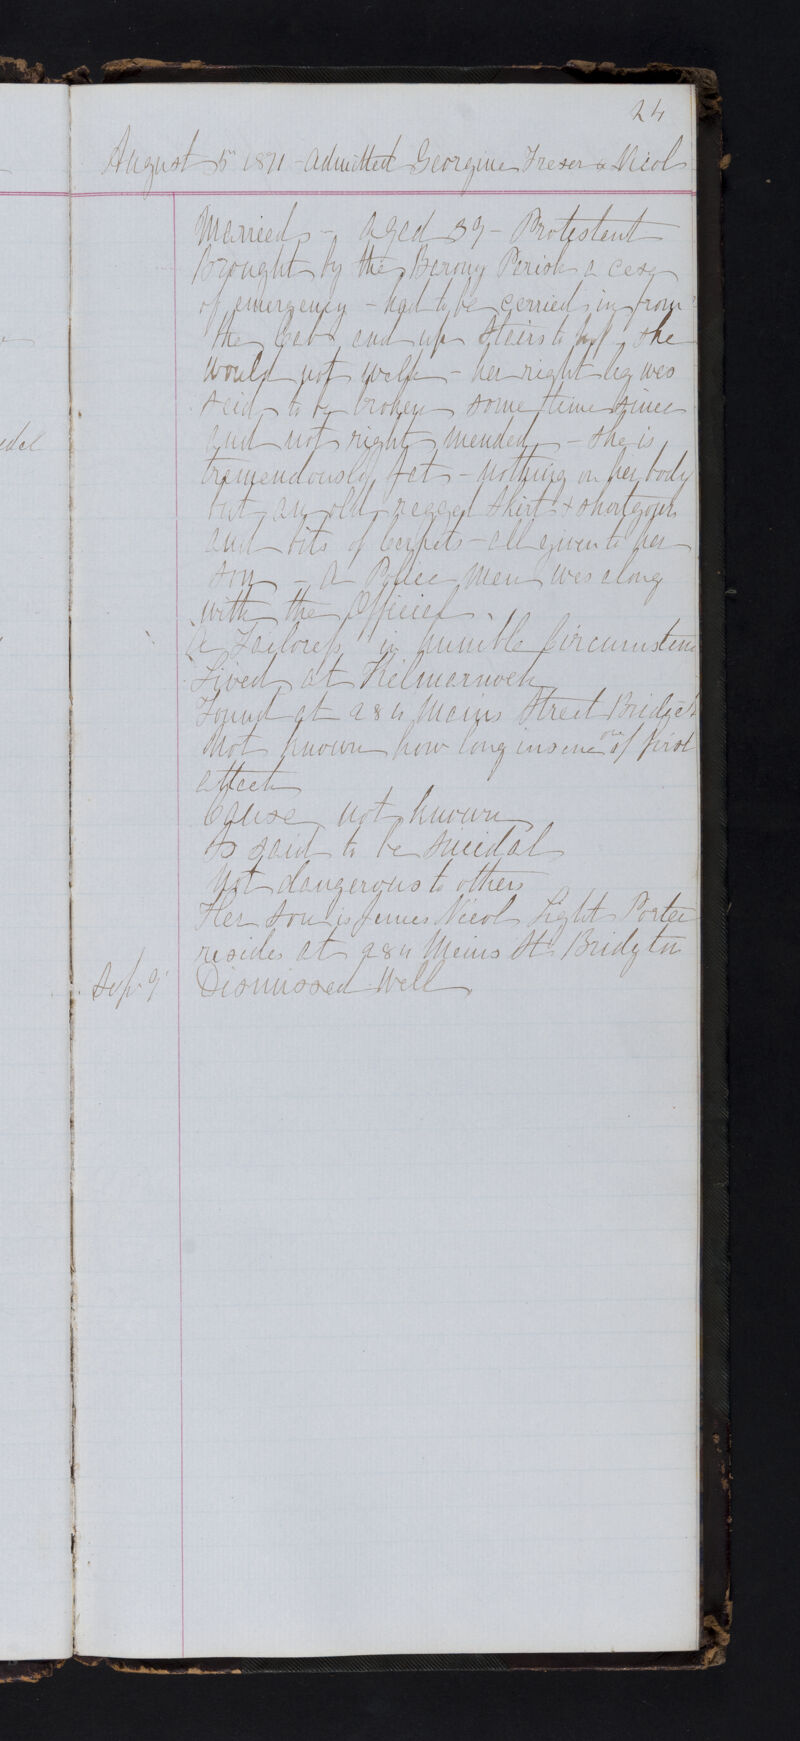 24
August 5th 1871 - Admitted Georgina Fraser or Nicol
Married - aged 39 - Protestant
Brought by the Barony Parish a case
of emergency - had to be carried in from
the Cab and up Stairs to she
would not walk - her right leg was
said to be broken some time since
and not right mended - she is
tremendously fat - nothing on her body
but an old ragged Skirt & shortgown
and bits of Carpets - all given to her
son - A Police Man was along
with the Officer
A Tailoress in humble Circumstan
Lived at Kilmarnock
Found at 284 Mains Street Bridget
Not known how long insane one of first
attack
Cause not known
Is said to be Suicidal
Not dangerous to others
Her son is James Nicol Light Porter
resides at 284 Mains St. Bridgton
Sep 9 Dismissed Well